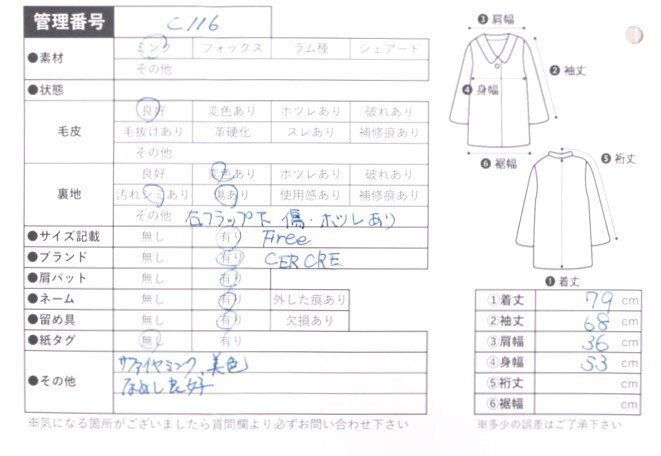 管理番号 C116
●素材 ミンク フォックス ラム種 シェアード
その他
●状態
毛皮 良好 変色あり ホツレあり 破れあり
毛抜けあり 革硬化 スレあり 補修痕あり
その他
裏地 良好 変色あり ホツレあり 破れあり
汚れシミあり 傷あり 使用感あり 補修痕あり
その他 右フラップ下 傷・ホツレあり
●サイズ記載 無し 有り Free
●ブランド 無し 有り CERCRE
●肩パット 無し 有り
●ネーム 無し 有り 外した痕あり
●留め具 無し 有り 欠損あり
●紙タグ 無し 有り
●その他 サファイヤミンク、美色
なめし良好
※気になる箇所がございましたら質問欄より必ずお問い合わせ下さい
❸肩幅
❷袖丈
❹身幅
❻裄幅
❺裄丈
❶着丈
①着丈 79 cm
②袖丈 68 cm
③肩幅 36 cm
④身幅 53 cm
⑤裄丈 cm
⑥裾幅 cm
※多少の誤差はご了承下さい